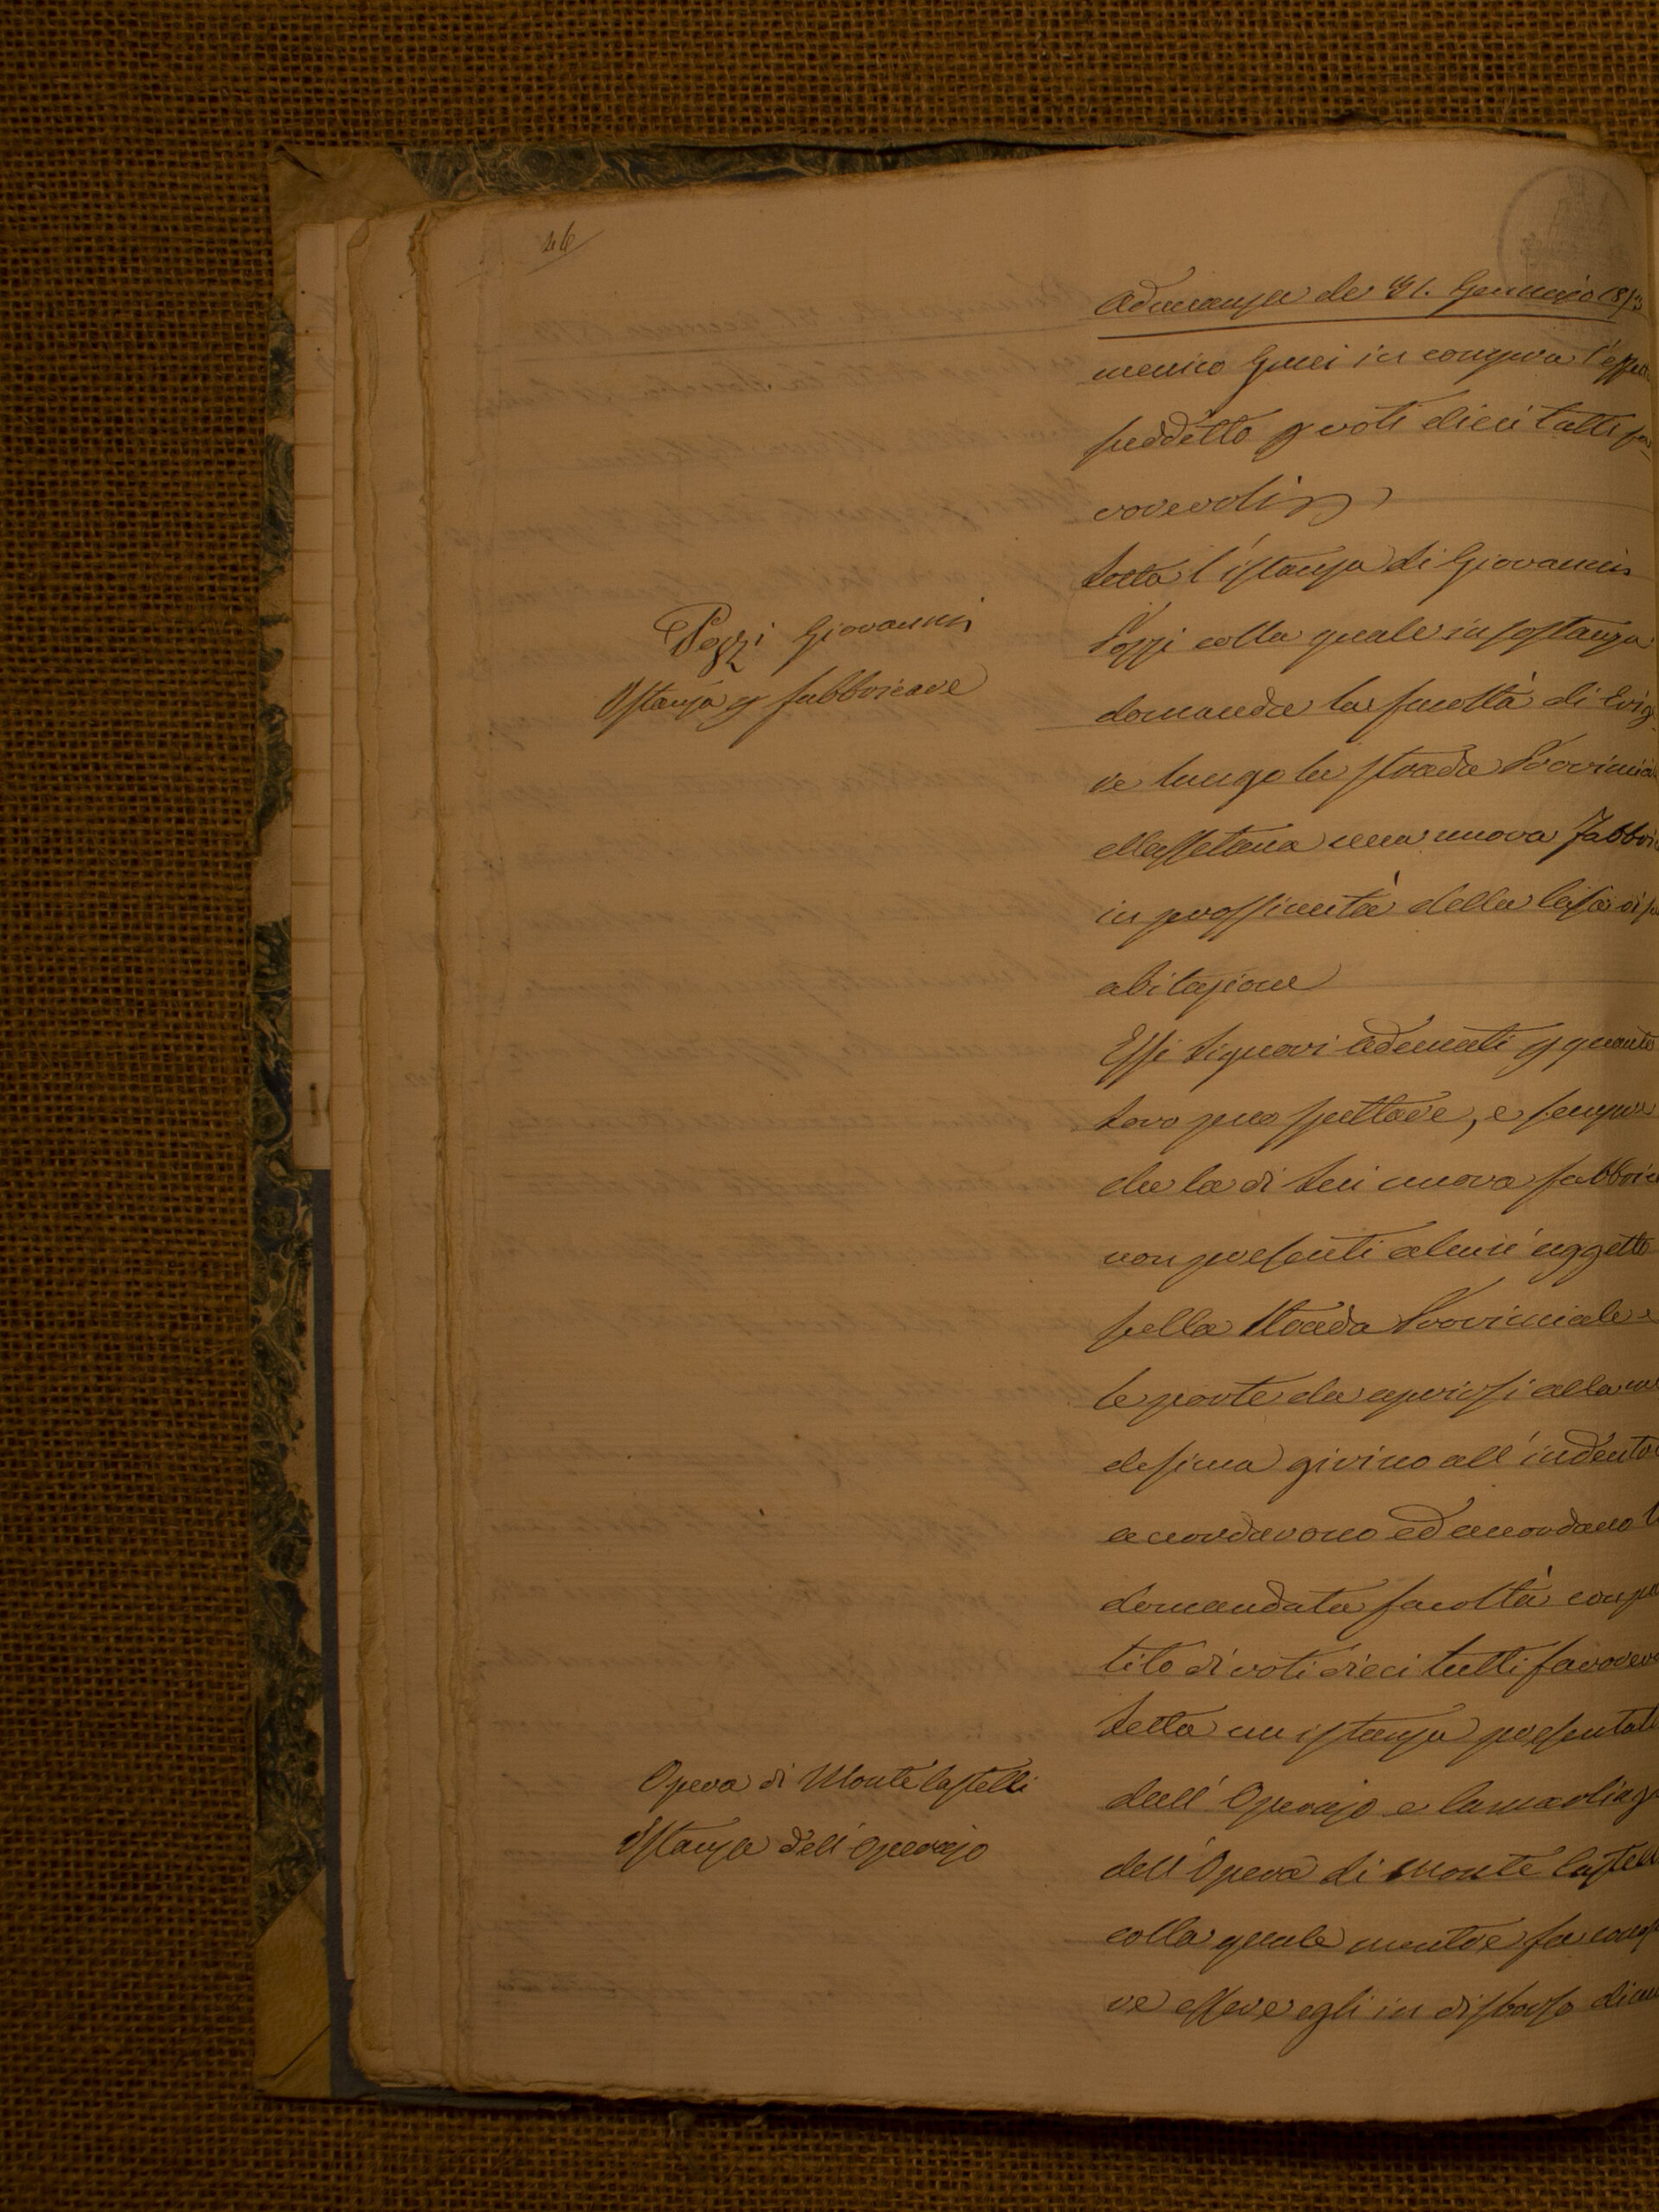 26
Adunanza de 31. Gennaio 18
menico Gucci in compra l'
suddetto p voti dieci tutti fa=
vorevoli
Letta l'istanza di Giovanni
Pozzi colla quale in sostanza
domanda la facoltà di Erig
re lungo la strada Provincia
Massetana una nuova Fabbri
in prossimità della Casa di su
abitazione
Pozzi Giovanni
Istanza p fabbricare
Essi Signori Adunati p quanto
Loro puo spettare, e sempre
che la di Lui nuova fabbric
non presenti alcun'aggetto
sulla Strada Provinciale e
le porte da aprirsi alla me
desima girino all'indentro
accordarono ed accordano l
domandata facoltà con pa
tito di voti dieci tutti favorev
Letta un istanza presentat
dall'Operajo e Camarling
dell'Opera di Monte Castell
colla quale mentre fa
re essere egli in disborso di
Opera di Monte Castelli
Istanza dell'Operajo